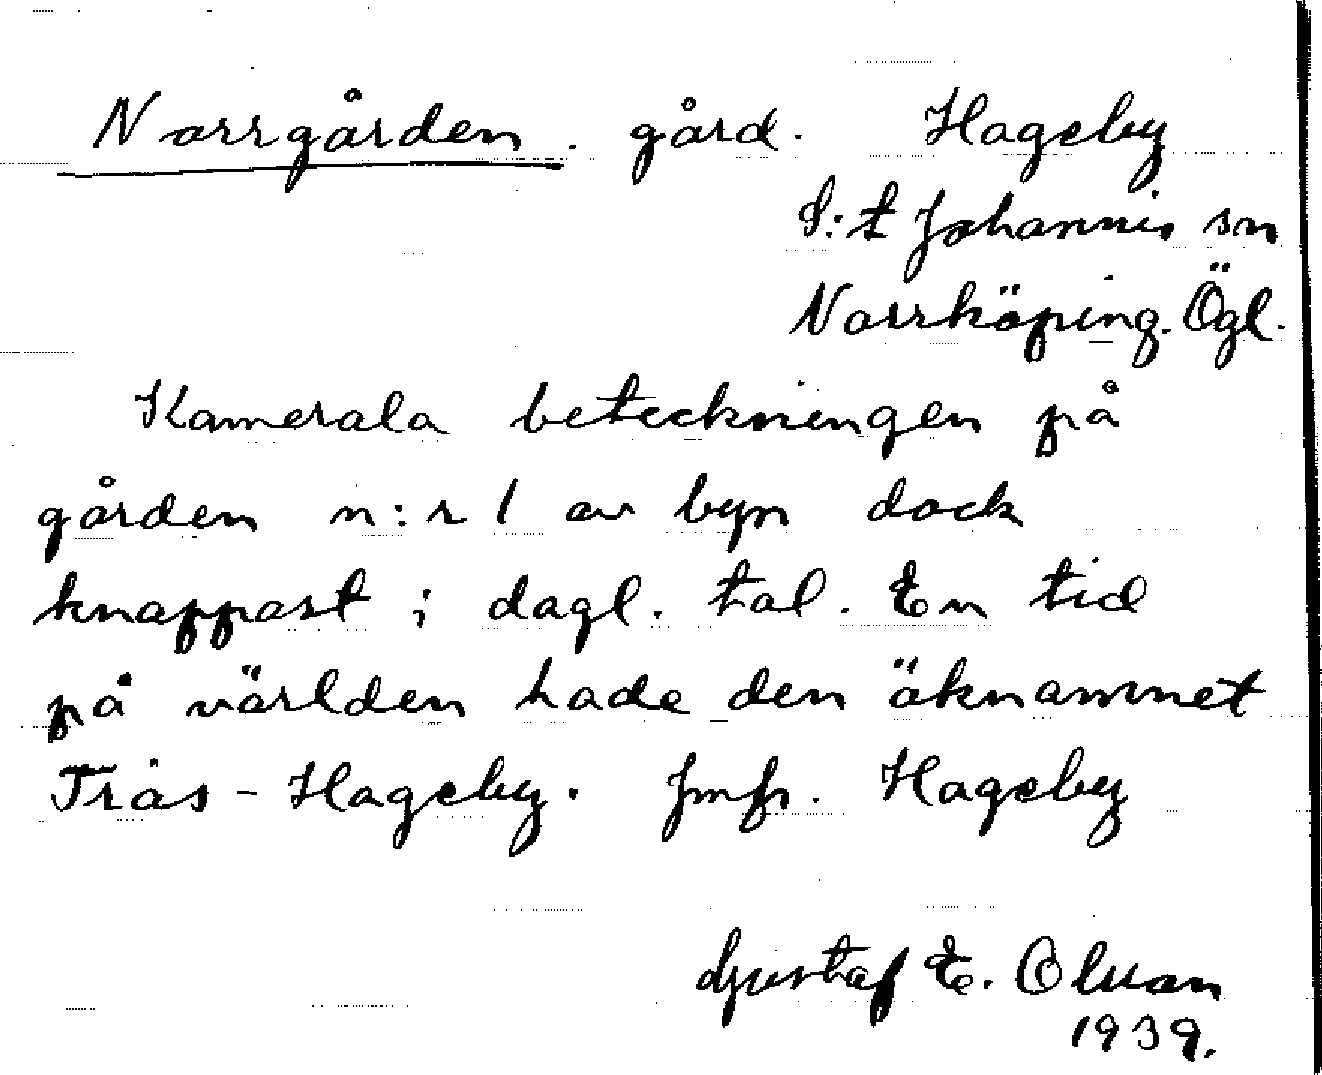 Norrgården. gård. Hageby
S:t Johannis sn
Norrköping. Ögl.
Kamerala beteckningen på
gården n:r 1 av byn dock
knappast i dagl. tal. En tid
på världen hade den öknamnet
Trås-Hageby. Jmfr. Hageby
Gustaf E. Olsson
1939.